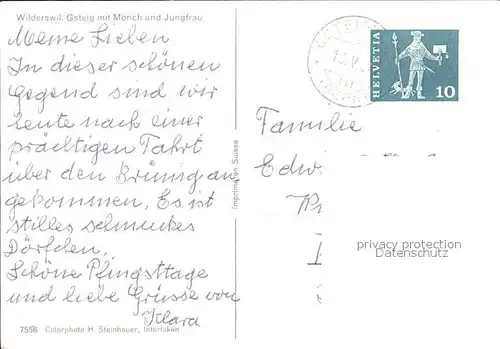 Wilderswil. Gsteig mit Mönch und Jungfrau
Meine Lieben
In dieser schönen
Gegend sind wir
heute nach einer
prächtigen Fahrt
über den Brünig an
gekommen. Es ist
stilles schmuckes
Dörfchen.
Schöne Pfingsttage
und liebe Grüsse von
Klara
7556 Colorphoto H. Steinhauer, Interlaken
Imprimé en Suisse
HELVETIA
10
Familie
privacy protection
Datenschutz